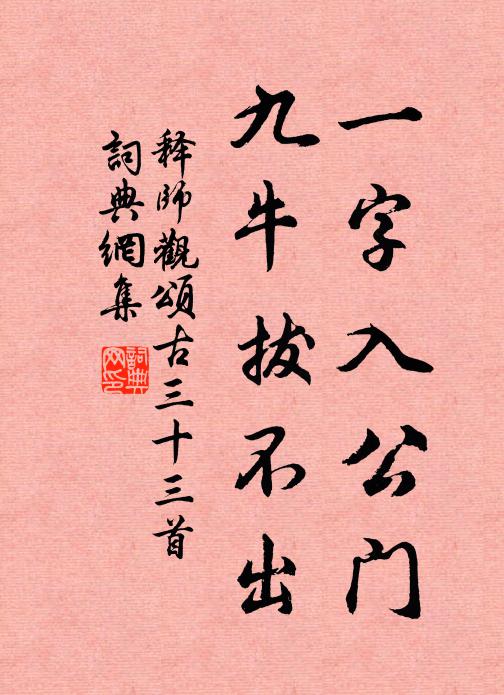 一字入公门
九牛拔不出
释師觀頌古三十三首
詞典網集
詞典网印